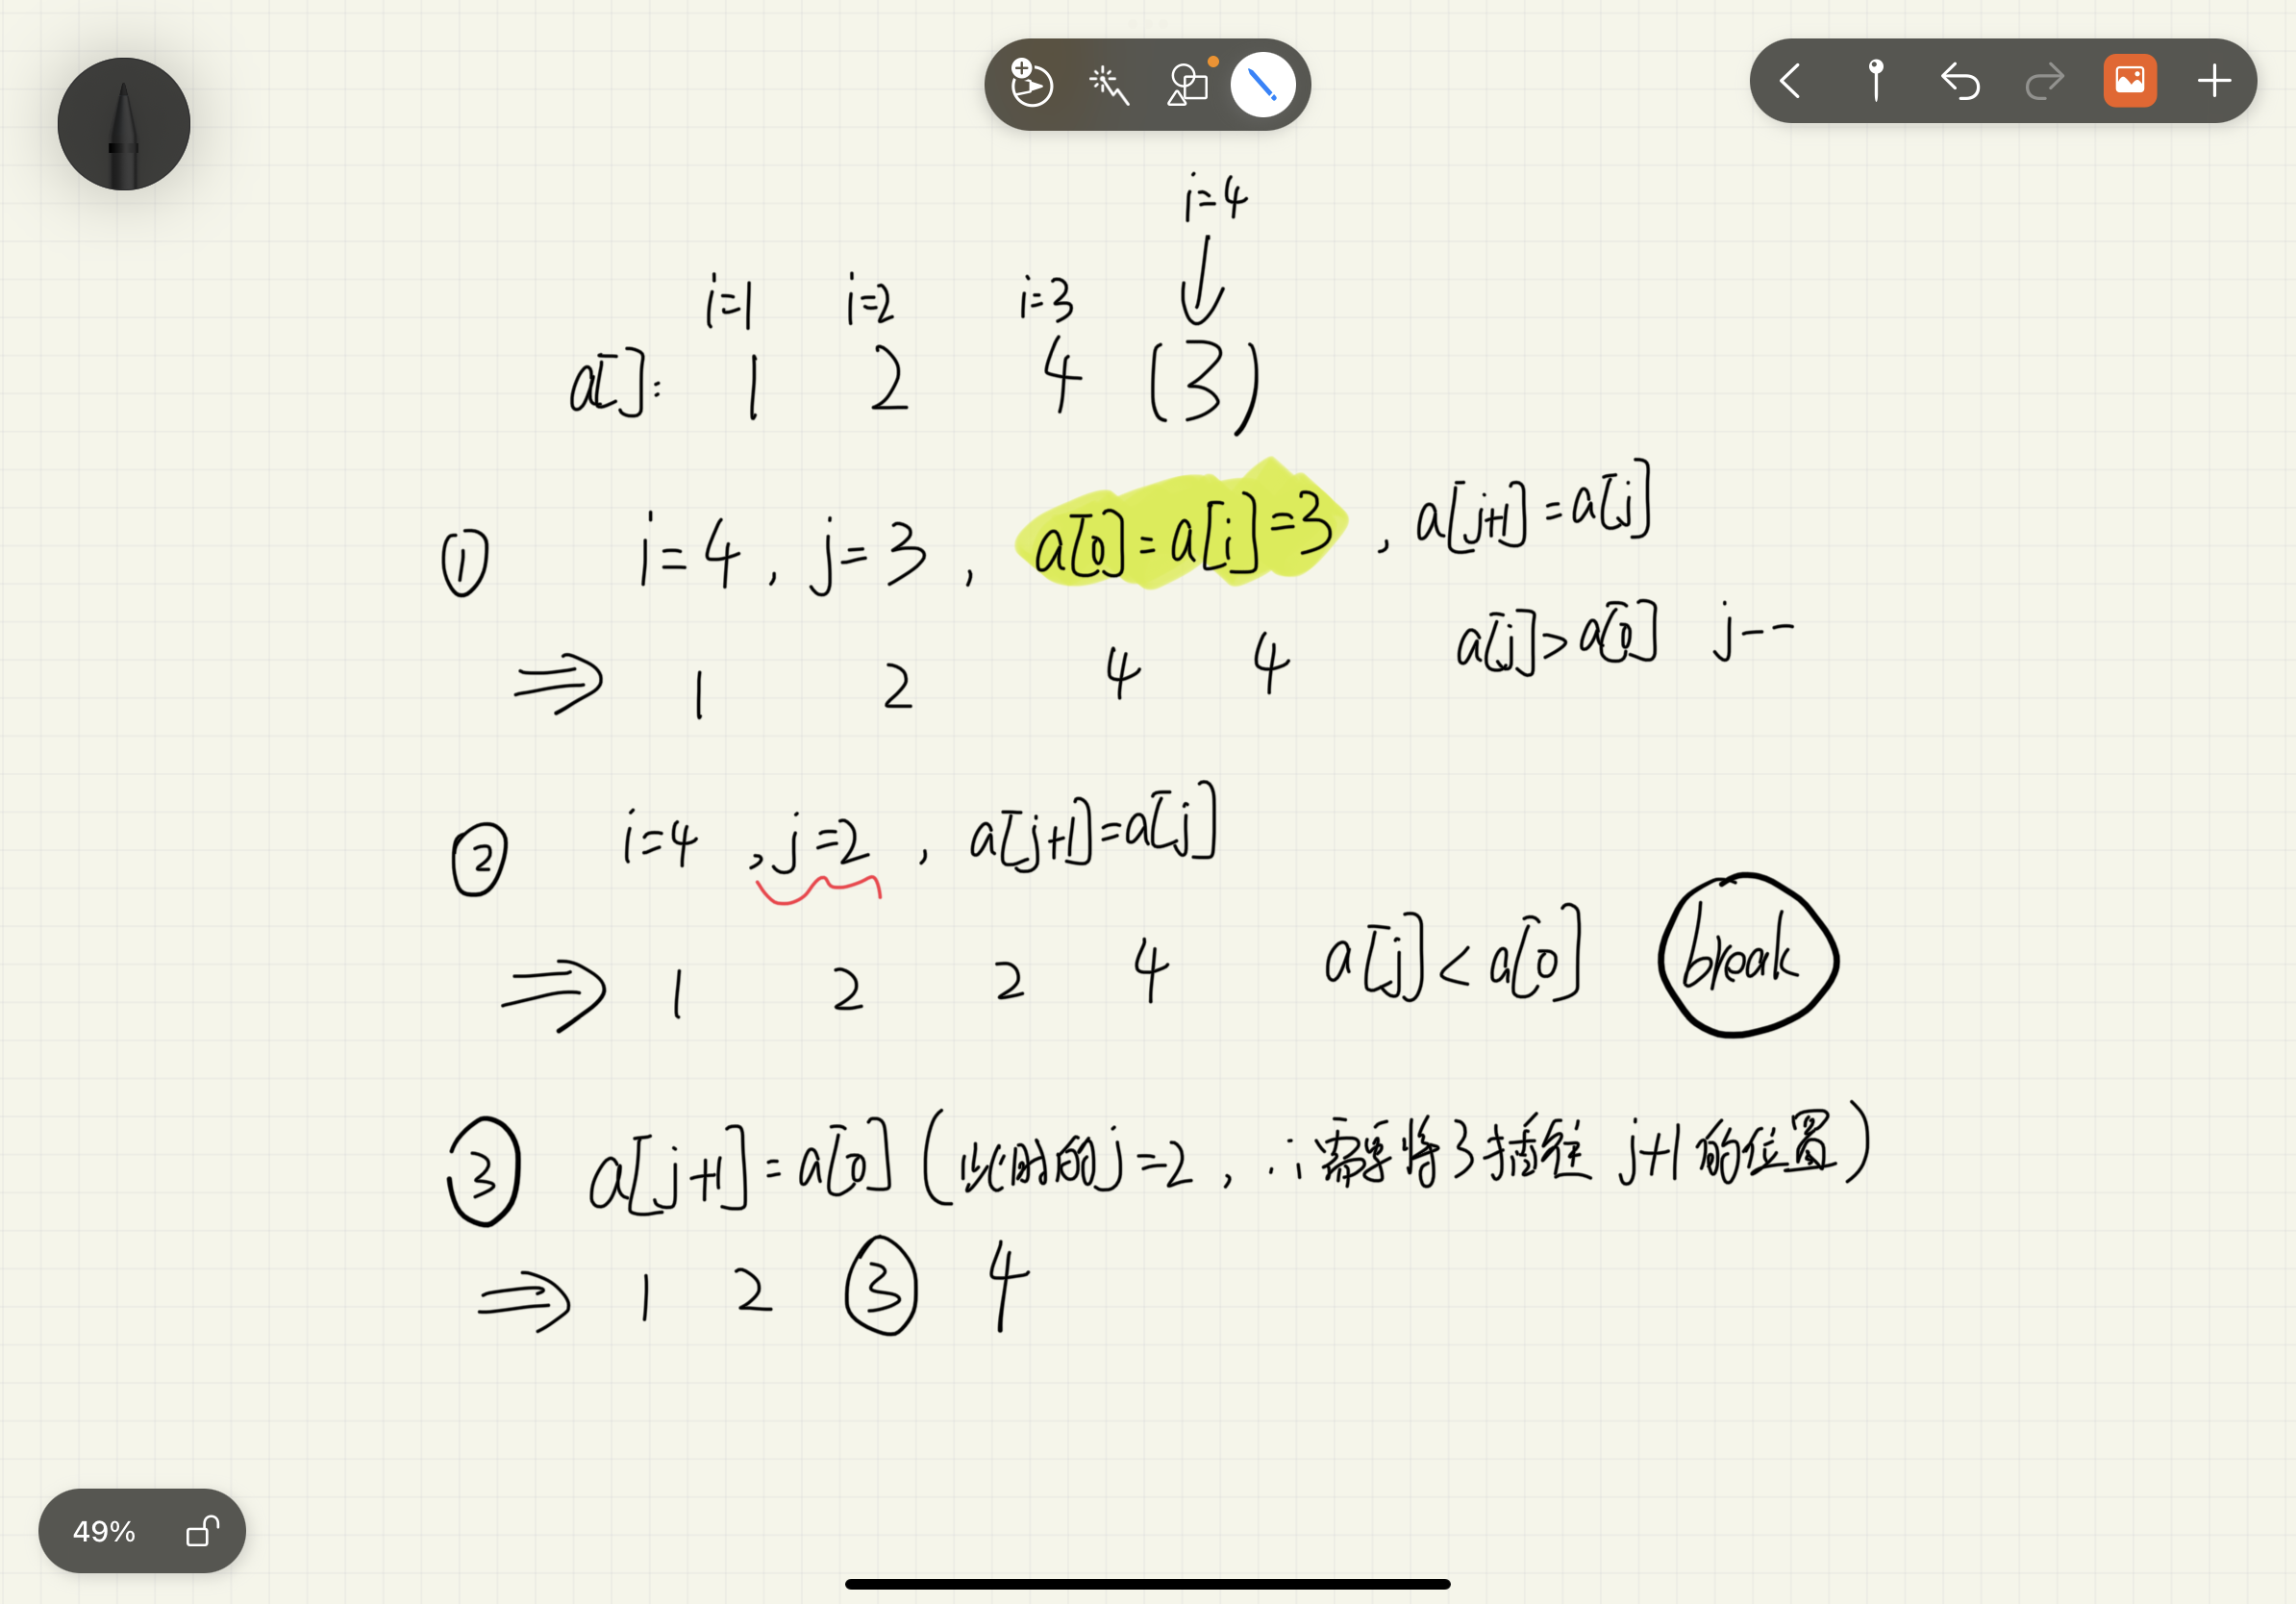 i=4
i=1 i=2 i=3
a[]: 1 2 4 (3)
① i=4, j=3, a[0]=a[i]=3, a[j+1]=a[j]
⇒ 1 2 4 4 a[j]>a[0] j--
② i=4, j=2, a[j+1]=a[j]
⇒ 1 2 2 4 a[j]<a[0] break
③ a[j+1]=a[0] (此时的j=2, ∴需要将3插在 j+1的位置)
⇒ 1 2 ③ 4
49%